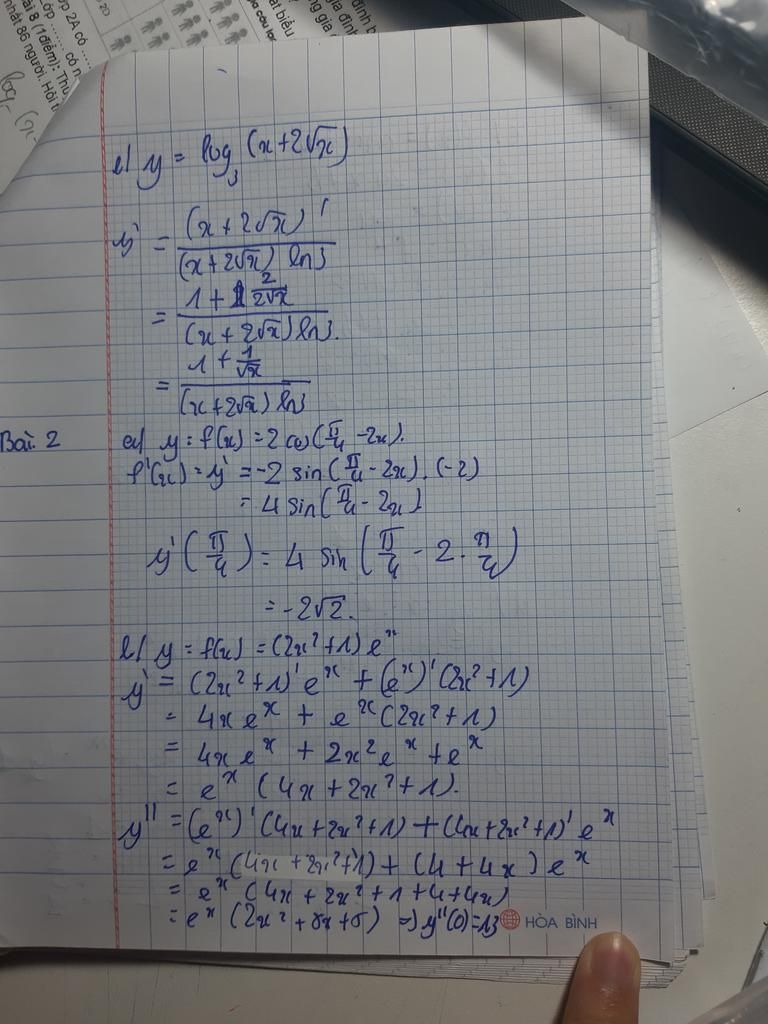 2A có
Lớp ...... có n
ài 8 (1 điểm): Thu
nhất 86 người. Hỏi
log
e/ y = log₃ (x+2√x)
y' = (x+2√x)' / (x+2√x) ln3
= 1 + 2/2√x / (x+2√x) ln3.
= 1 + 1/√x / (x+2√x) ln3
Bài 2 a/ y = f(x) = 2 cos(π/4 - 2x).
f'(x) = y' = -2 sin(π/4 - 2x). (-2)
= 4 sin(π/4 - 2x)
y'(π/4) = 4 sin(π/4 - 2.π/4)
= -2√2.
b/ y = f(x) = (2x²+1)eˣ
y' = (2x²+1)'eˣ + (eˣ)'(2x²+1)
= 4xeˣ + eˣ(2x²+1)
= 4xeˣ + 2x²eˣ + eˣ
= eˣ (4x+2x²+1).
y'' = (eˣ)'(4x+2x²+1) + (4x+2x²+1)'eˣ
= eˣ(4x+2x²+1) + (4+4x)eˣ
= eˣ (4x+2x²+1+4+4x)
= eˣ (2x²+8x+5) => y''(0)=13
HÒA BÌNH